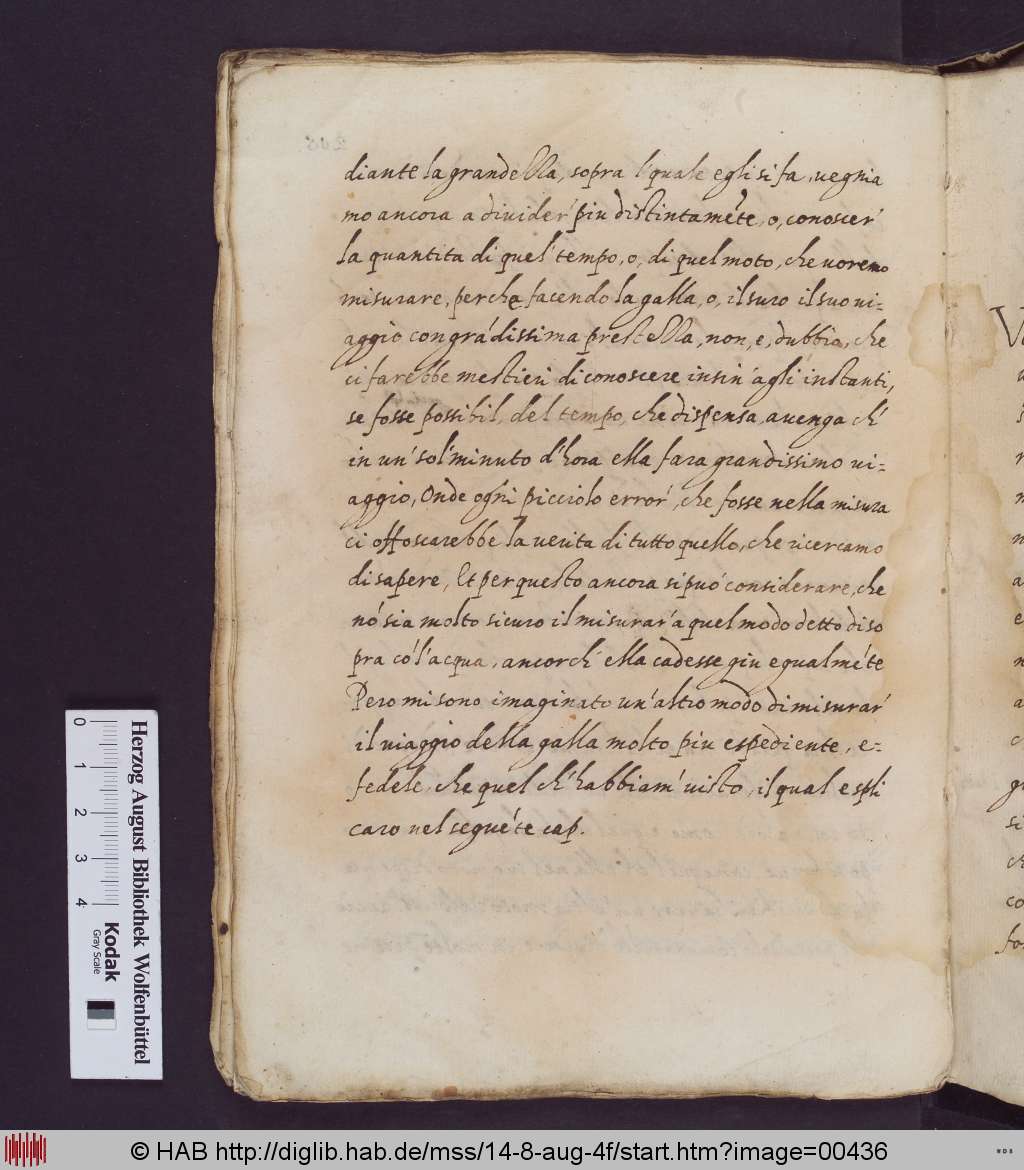 diante la grandezza, sopra l'quale egli si fa, uegnia
mo ancora a diuider' piu distintame'te, o, conoscer'
la quantita di quel' tempo, o, di quel moto, che uoremo
misurare, perche facendo la galla, o, il suro il suo ui-
aggio con gra'dissima prestezza, non, e, dubbio, che
ci farebbe mestieri di conoscere insin' agli instanti,
se fosse possibil, del tempo, che dispensa, auenga ch'
in un' sol' minuto d'hora ella fara grandissimo ui-
aggio, Onde ogni picciolo error', che fosse nella misura
ci offoscarebbe la uerita di tutto quello, che ricercamo
di sapere, Et per questo ancora si puo' considerare, che
no' sia molto sicuro il misurar' a quel modo detto di so
pra co' l'acqua, ancorch' ella cadesse giu egualme'te
Pero mi sono imaginato un' altro modo di misurar'
il uiaggio della galla molto piu espediente, e-
fedele, che quel ch' habbiam' uisto, il qual espli
caro nel segue'te cap.
Herzog August Bibliothek Wolfenbüttel
Kodak
Gray Scale
0 1 2 3 4
© HAB http://diglib.hab.de/mss/14-8-aug-4f/start.htm?image=00436